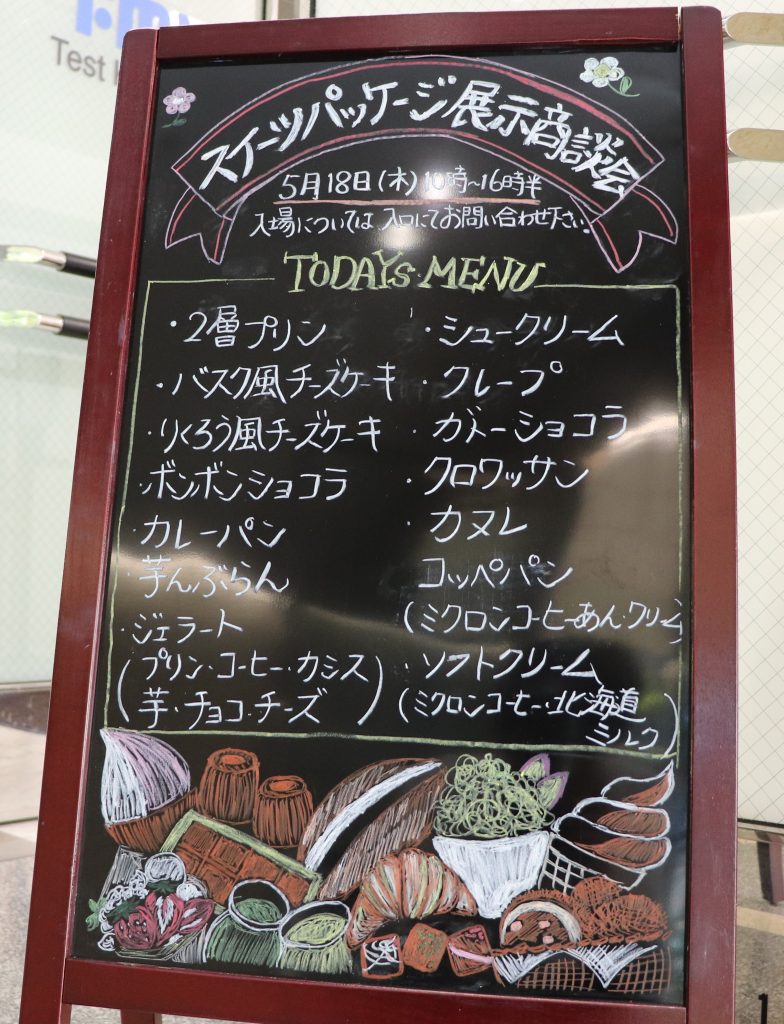 Test
スイーツパッケージ展示商談会
5月18日(木)10時~16時半
入場については、入口にてお問い合わせ下さい。
TODAYS・MENU
・2層プリン
・バスク風チーズケーキ
・りくろう風チーズケーキ
・ボンボンショコラ
・カレーパン
・芋んぶらん
・ジェラート
(プリン・コーヒー・カシス
芋・チョコ・チーズ)
・シュークリーム
・クレープ
・ガトーショコラ
・クロワッサン
・カヌレ
コッペパン
(ミクロンコーヒーあん・クリーム)
・ソフトクリーム
(ミクロンコーヒー・北海道
ミルク)